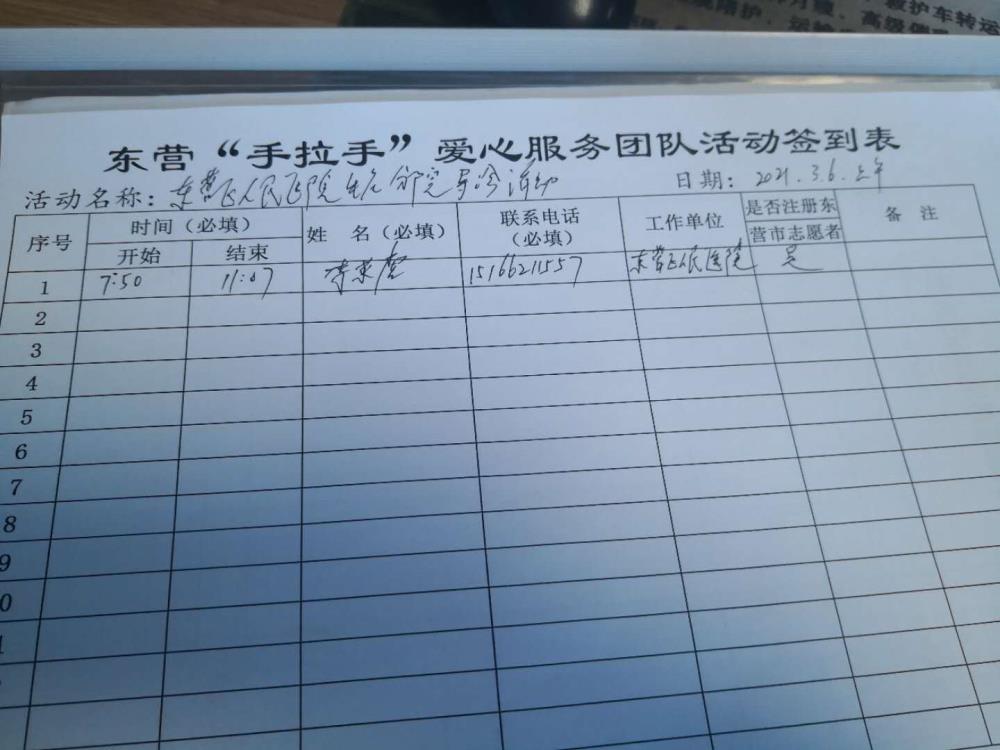 救护车转运
东营“手拉手”爱心服务团队活动签到表
活动名称：东营区人民医院 导诊活动
日期：2021.3.6.上午
序号 时间（必填） 姓 名（必填） 联系电话（必填） 工作单位 是否注册东营市志愿者 备 注
开始 结束
1 7:50 11:07 15166211557 东营区人民医院 是
2
3
4
5
6
7
8
9
0